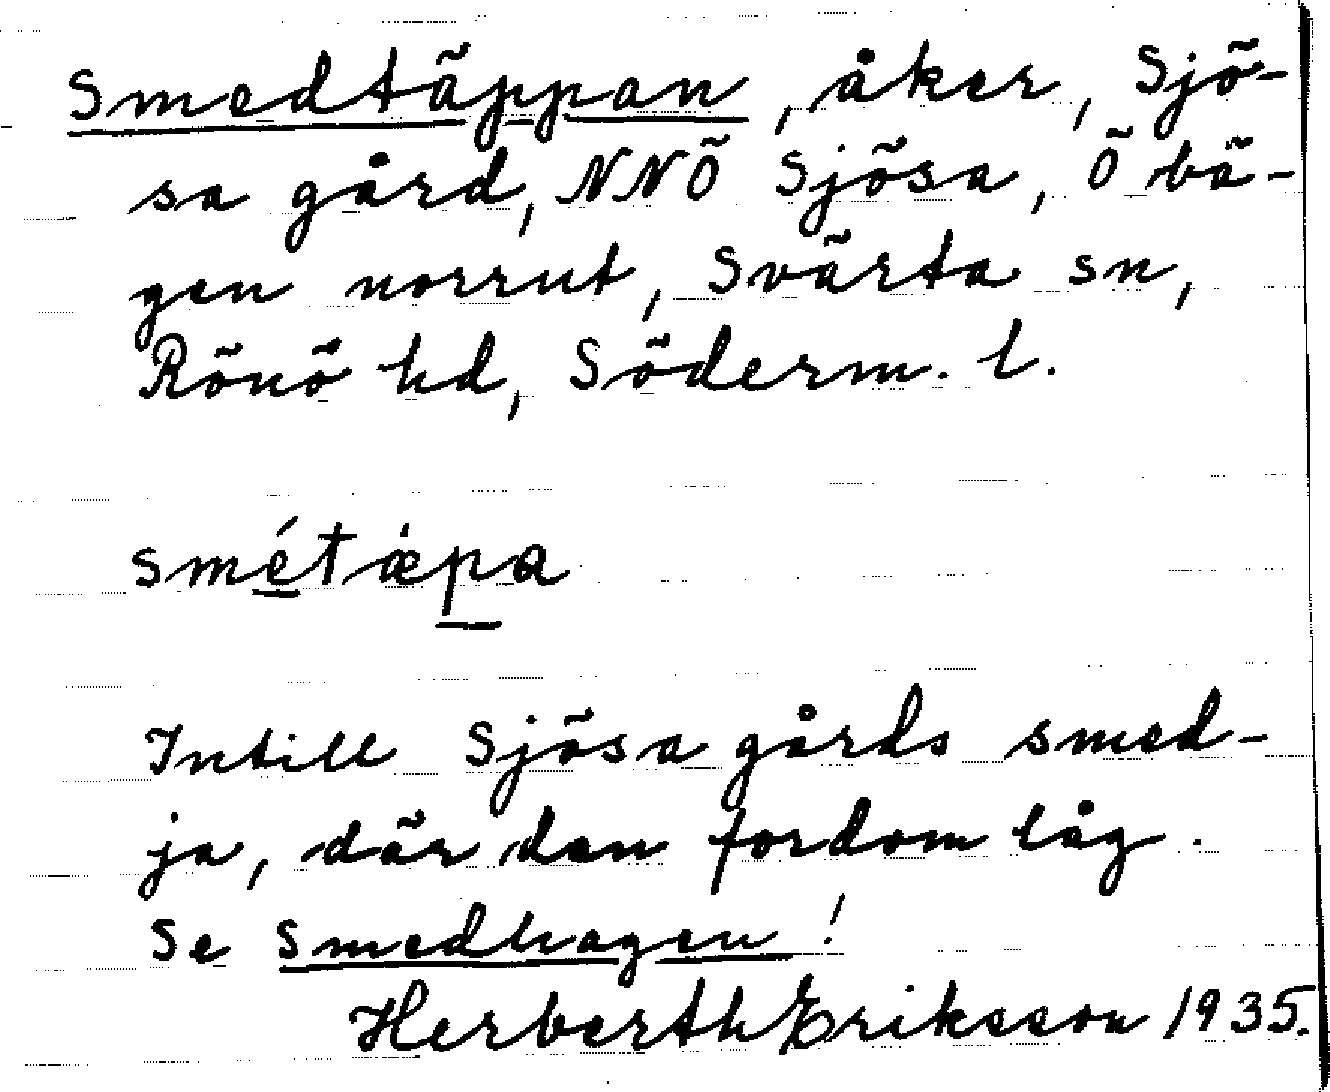 Smedtäppan, åker, Sjö-
sa gård, NNÖ Sjösa, Ö bä-
gen norrut, Svärta sn,
Rönö hd, Söderm. l.
smétæ̀pa
Intill Sjösa gårds smed-
ja, där den fordom låg.
Se Smedhagen!
Herberth Eriksson 1935.